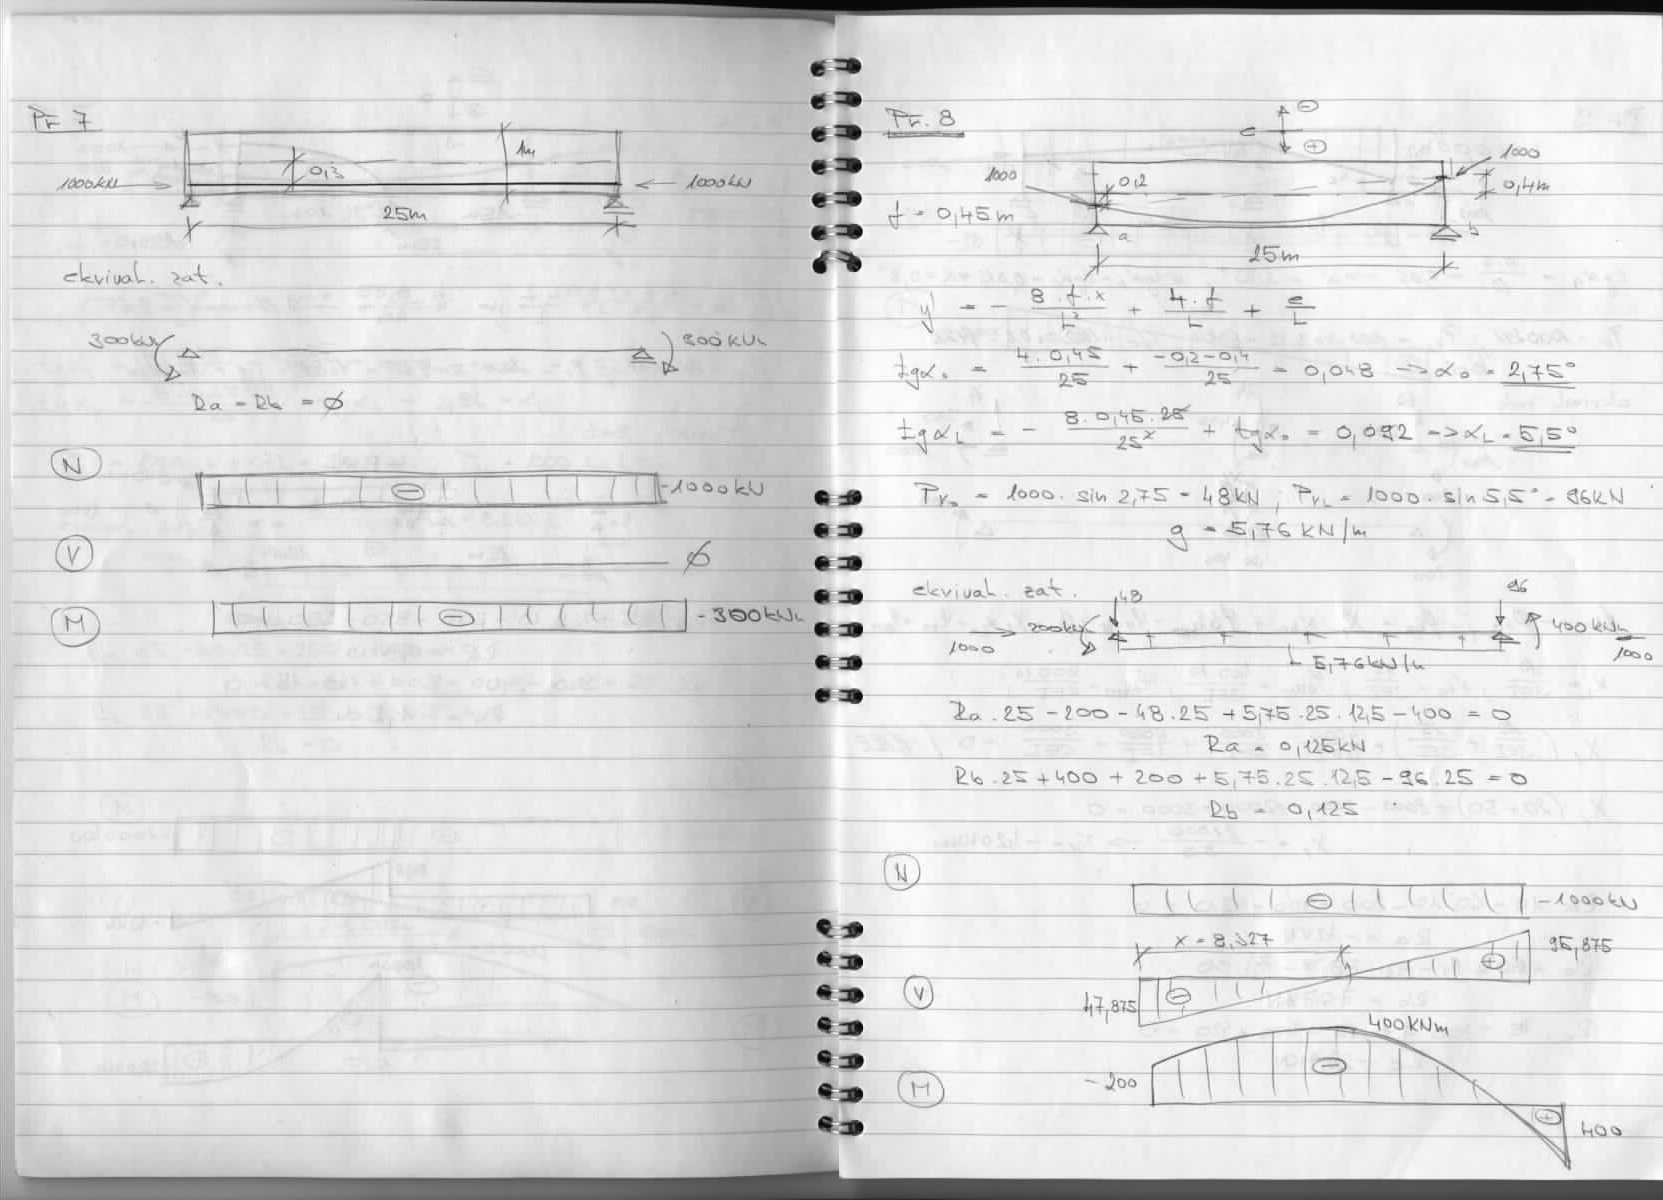 Př 7
1m
0,3
1000kN
1000kN
25m
ekvival. zat.
300kNm
300kNm
Ra = Rb = ∅
N
-1000kN
V
∅
M
-300kNm
Př. 8
e
1000
1000
0,2
0,4m
f = 0,45m
a
b
25m
y' = - 8.f.x/L² + 4.f/L + e/L
tgα₀ = 4.0,45/25 + -0,2-0,4/25 = 0,048 → α₀ = 2,75°
tgα_L = - 8.0,45.25/25² + tgα₀ = 0,092 → α_L = 5,5°
Pv₀ = 1000. sin 2,75 = 48kN ; Pv_L = 1000. sin 5,5° = 96kN
g = 5,76 KN/m
ekvival. zat.
48
96
200kN
400kNm
1000
1000
5,76kN/m
Ra.25 -200 -48.25 +5,75.25.12,5 -400 = 0
Ra = 0,125kN
Rb.25 +400 +200 +5,75.25.12,5 -96.25 = 0
Rb = 0,125
N
-1000kN
x = 8,327
95,875
V
47,875
400kNm
-200
M
400